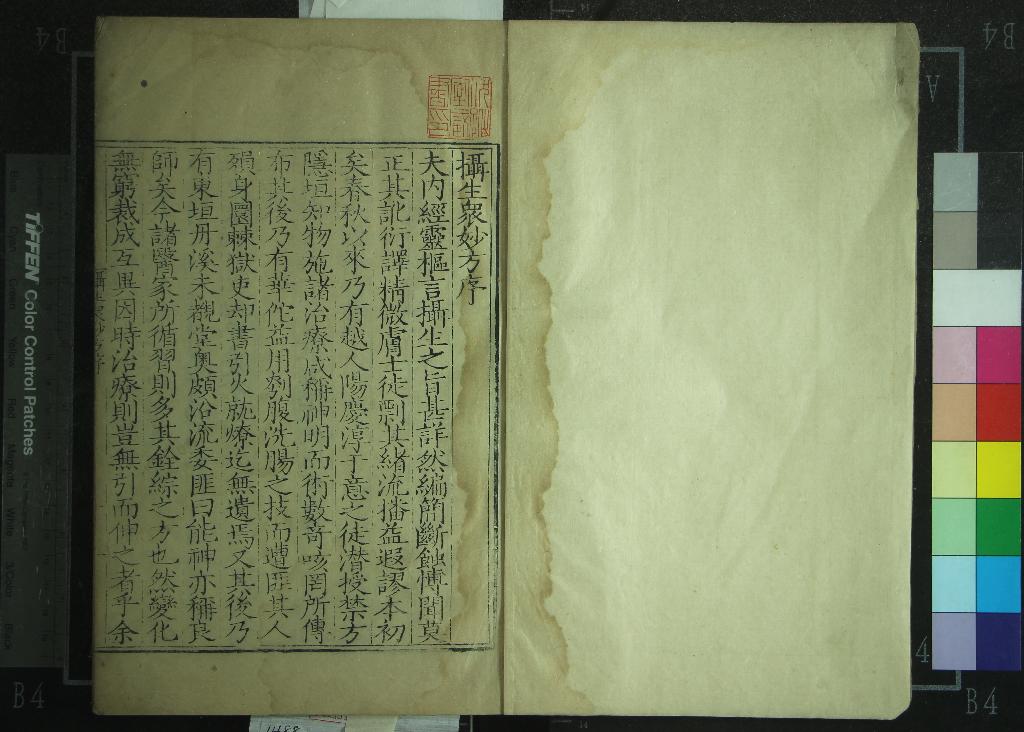 攝生眾妙方序
夫內經靈樞言攝生之旨甚詳然編簡斷蝕博聞莫
正其訛衍譯精微膚士徒剽其緒流播益遐謬本初
矣春秋以來乃有越人陽慶淳于意之徒潛授禁方
隱垣知物施諸治療咸稱神明而術數奇咳罔所傳
布其後乃有華佗益用刳腹洗腸之技而遭匪其人
殞身圜棘獄吏却書引火就燎迄無遺焉又其後乃
有東垣丹溪未覩堂奥頗沿流委匪曰能神亦稱良
師矣今諸醫家所循習則多其銓綜之方也然變化
無窮裁成互異因時治療則豈無引而伸之者乎余
攝生眾妙方序
TIFFEN Color Control Patches
B4
B4
B4
B4
A